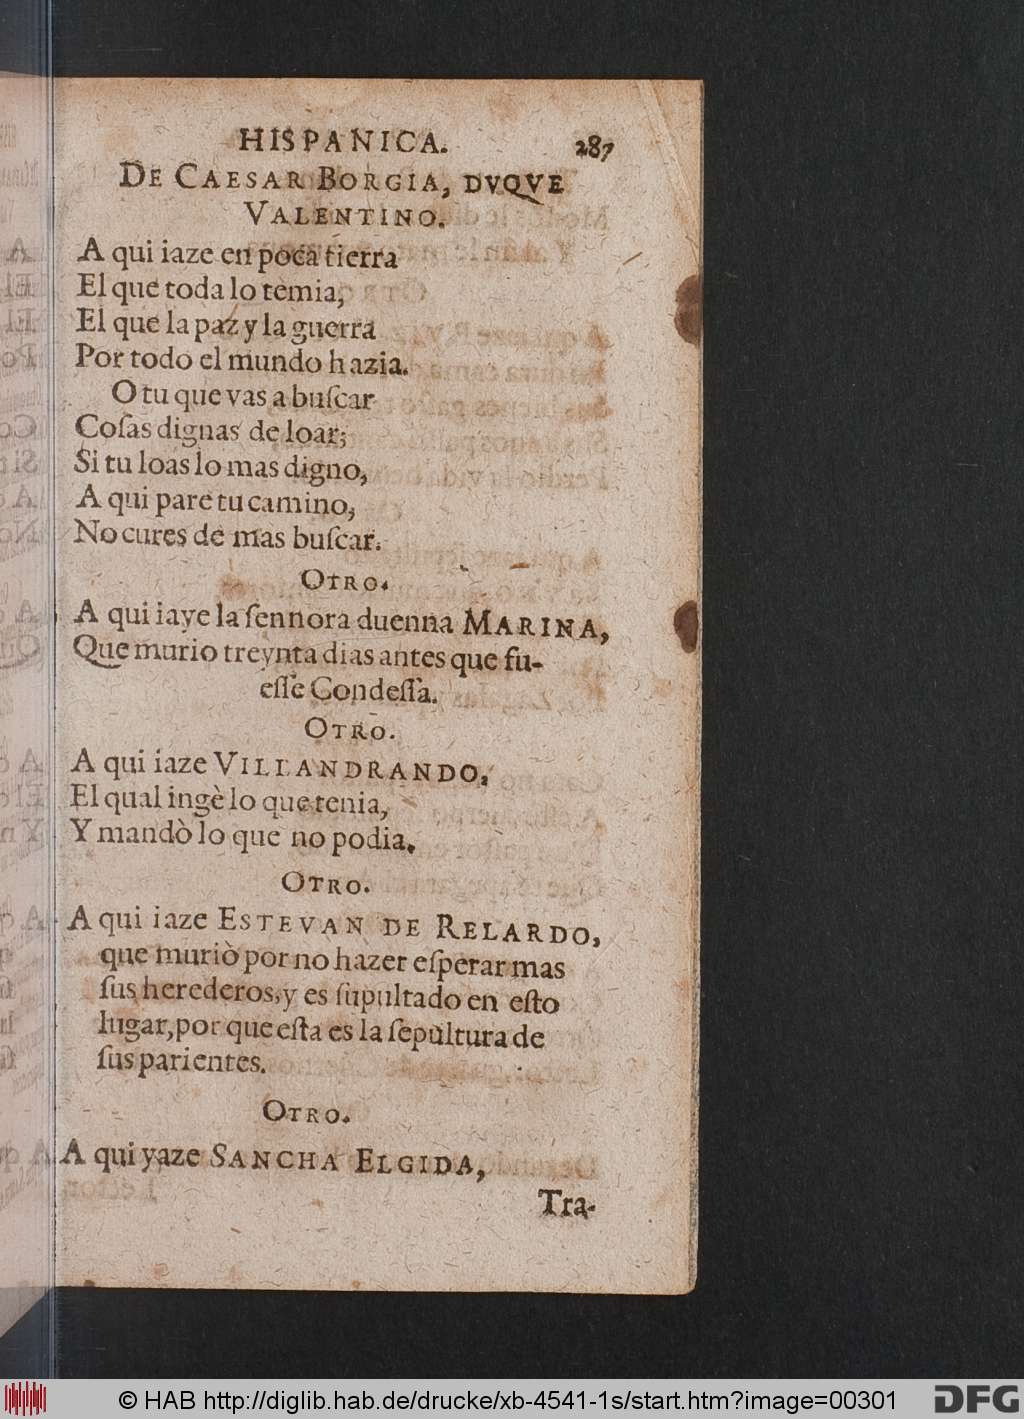 HISPANICA. 287
DE CAESAR BORGIA, DVQVE
VALENTINO.
A qui iaze en poca tierra
El que toda lo temia,
El que la paz y la guerra
Por todo el mundo hazia.
O tu que vas a buſcar
Coſas dignas de loar;
Si tu loas lo mas digno,
A qui pare tu camino,
No cures de mas buſcar.
OTRO.
A qui iaye la ſennora duenna MARINA,
Que murio treynta dias antes que fu-
eſſe Condeſſa.
OTRO.
A qui iaze VILLANDRANDO,
El qual ingè lo que tenia,
Y mandò lo que no podia.
OTRO.
A qui iaze ESTEVAN DE RELARDO,
que muriò por no hazer eſperar mas
ſus herederos, y es ſupultado en eſto
lugar, por que eſta es la ſepultura de
ſus parientes.
OTRO.
A qui yaze SANCHA ELGIDA,
Tra-
© HAB http://diglib.hab.de/drucke/xb-4541-1s/start.htm?image=00301
DFG